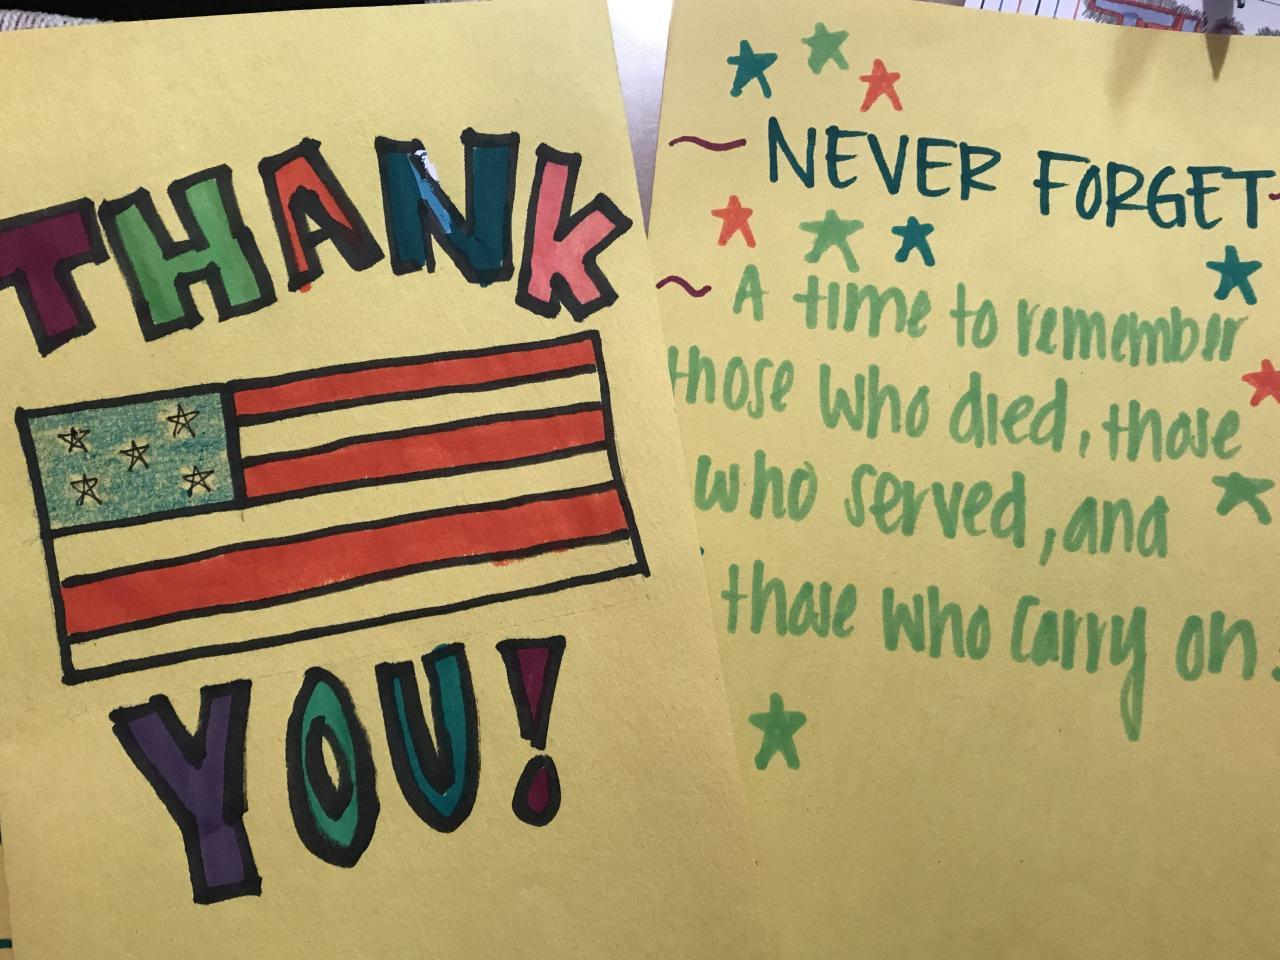 THANK
YOU!
~ NEVER FORGET ~
~ A time to remember
those who died, those
who served, and
those who carry on